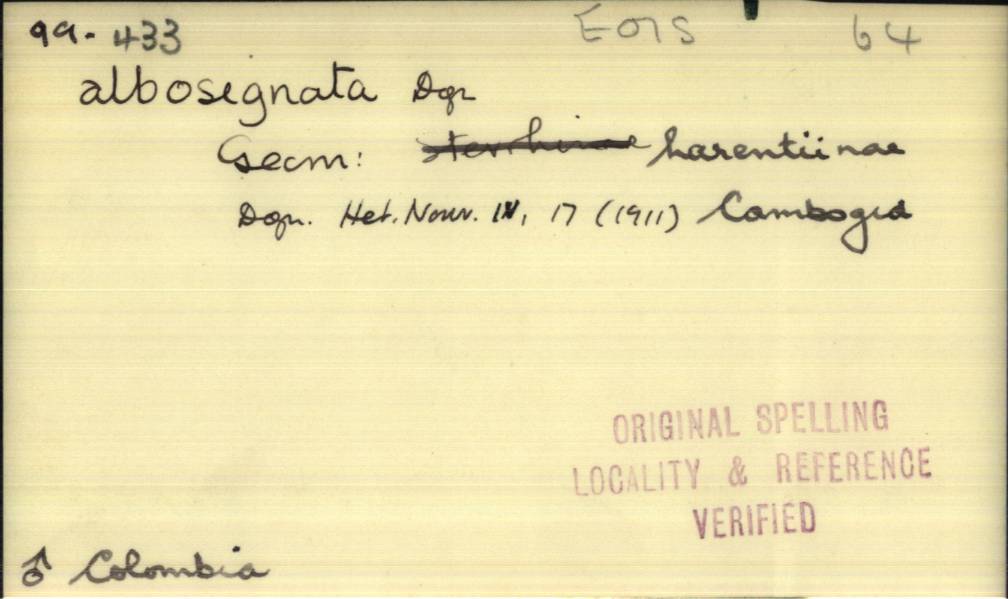 99-433 EOIS 64
albosignata Dgn
Geom: Sterrhinae Larentiinae
Dgn. Het. Nouv. IV, 17 (1911) Cambogia
ORIGINAL SPELLING
LOCALITY & REFERENCE
VERIFIED
♂ Colombia